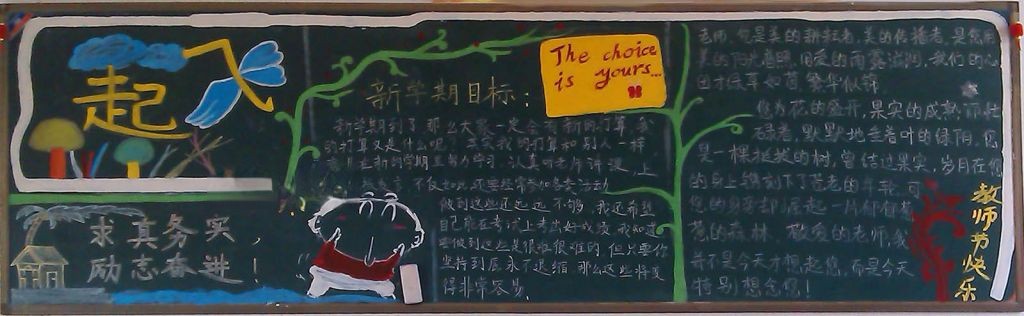 起飞
求真务实，
励志奋进！
新学期目标：
新学期到了,那么大家一定会有新的打算,我
的打算又是什么呢?其实我的打算和别人一样
在新的学期里努力学习,认真听老师讲课,上
不仅如此,还要经常参加各类活动
做到这些还远远不够,我还希望
自己能在考试上考出好成绩,我知道
要做到这些是很难很难的,但只要你
坚持到底,永不退缩,那么这些将变
得非常容易.
The choice
is yours...
老师,您是美的耕耘者,美的传播者,是您用
美的阳光普照,用爱的雨露滋润,我们的心
田才绿草如茵,繁华似锦.
您为花的盛开,果实的成熟而忙
碌着,默默地垂着叶的绿阴,您
是一棵挺拔的树,曾结过果实,岁月在您
的身上镌刻下了苍老的年轮,可
您的身旁却崛起一片郁郁葱
葱的森林.敬爱的老师,我
并不是今天才想起您,而是今天
特别想念您!
教师节快乐